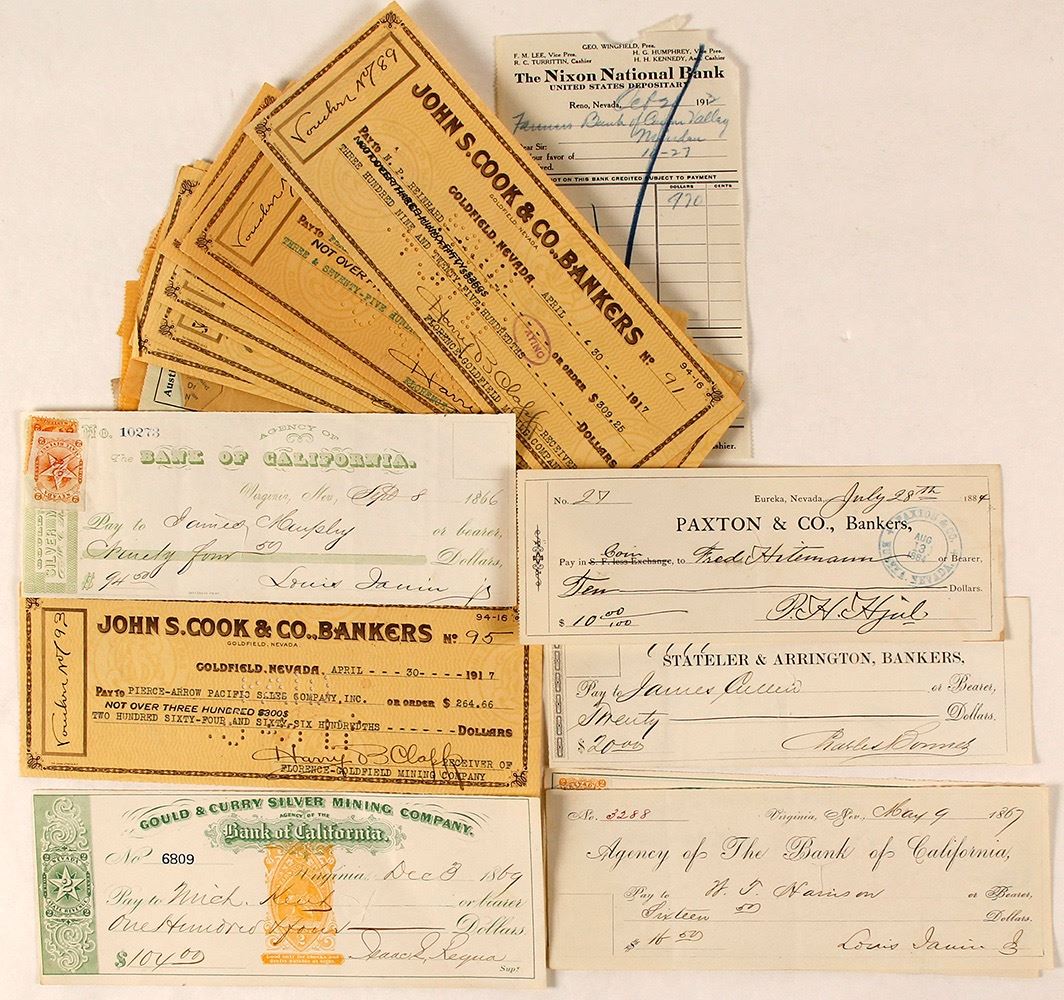 GEO. WINGFIELD, Pres.
F. M. LEE, Vice Pres. H. G. HUMPHREY, Vice Pres.
R. C. TURRITTIN, Cashier H. H. KENNEDY, Asst. Cashier
The Nixon National Bank
UNITED STATES DEPOSITARY
Reno, Nevada, 191
Farmers Bank of Carson Valley
10-27
our favor of
NOT ON THIS BANK CREDITED SUBJECT TO PAYMENT
DOLLARS CENTS
970
Voucher No 789
JOHN S. COOK & CO., BANKERS
GOLDFIELD, NEVADA
No 91
94-16
GOLDFIELD, NEVADA, APRIL - - - 30 - - - 1917
PAY TO N. P. REINHARD OR ORDER $ 309.25
THREE HUNDRED NINE AND TWENTY-FIVE HUNDREDTHS - - - DOLLARS
PAYING
Harry B Claff
RECEIVER
FLORENCE-GOLDFIELD
Voucher
PAY TO
NOT OVER
THREE & SEVENTY-FIVE
Aust
No. 10273
AGENCY OF
The BANK OF CALIFORNIA.
Virginia, Nev, Sept 8 1866
Pay to James Murphy or bearer,
Ninety four 50 Dollars,
$ 94 50 Louis Janin Jr
SILVER
Voucher No 793
94-16
JOHN S. COOK & CO., BANKERS No 95
GOLDFIELD, NEVADA.
GOLDFIELD, NEVADA, APRIL - - - 30- - - - - 1917
PAY TO PIERCE-ARROW PACIFIC SALES COMPANY, INC. OR ORDER $ 264.66
NOT OVER THREE HUNDRED $300$
TWO HUNDRED SIXTY-FOUR AND SIXTY-SIX HUNDREDTHS - - - - - - DOLLARS
Harry B Claff
RECEIVER OF
FLORENCE-GOLDFIELD MINING COMPANY
GOULD & CURRY SILVER MINING COMPANY,
AGENCY OF THE
Bank of California.
No 6809
Virginia Dec 3 1869
Pay to Mich. or bearer
One Hundred & four Dollars
$ 104 00 Isaac L. Requa
Supt
No. 27 Eureka, Nevada, July 28th 1884
PAXTON & CO., Bankers,
Pay in Coin S. F. less Exchange, to Fred. Hitemann or Bearer,
Ten Dollars.
$ 10 00/100 P. H. Hjul
PAXTON & CO.
AUG
13
1884
STATELER & ARRINGTON, BANKERS,
Pay to James Cullen or Bearer,
Twenty Dollars.
$ 20 00 Charles
No. 3288 Virginia, Nev., May 9 1867
Agency of The Bank of California,
Pay to W. F. Harrison or Bearer,
Sixteen 50 Dollars.
$ 16 50 Louis Janin Jr